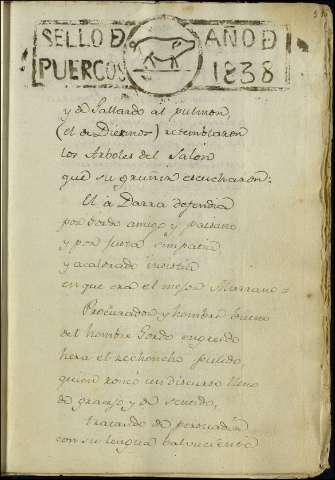 SELLO D AÑO D
PUERCOS 1838
y de Gallardo al pulmon,
(el de Diezmos) retemblaron
los Arboles del Salon
que su gruñir escucharon:
El á Darra defendia
por Gordo amigo y paisano
y por justa simpatia
y acalorado insistia
en que era el mejor Marrano =
Procurador y hombre bueno
del hombre Gordo engreido
hera el rechoncho pulido
quien roncó un discurso lleno
de granjo y de sentido,
tratando de persuadir
con su lengua balbuciente